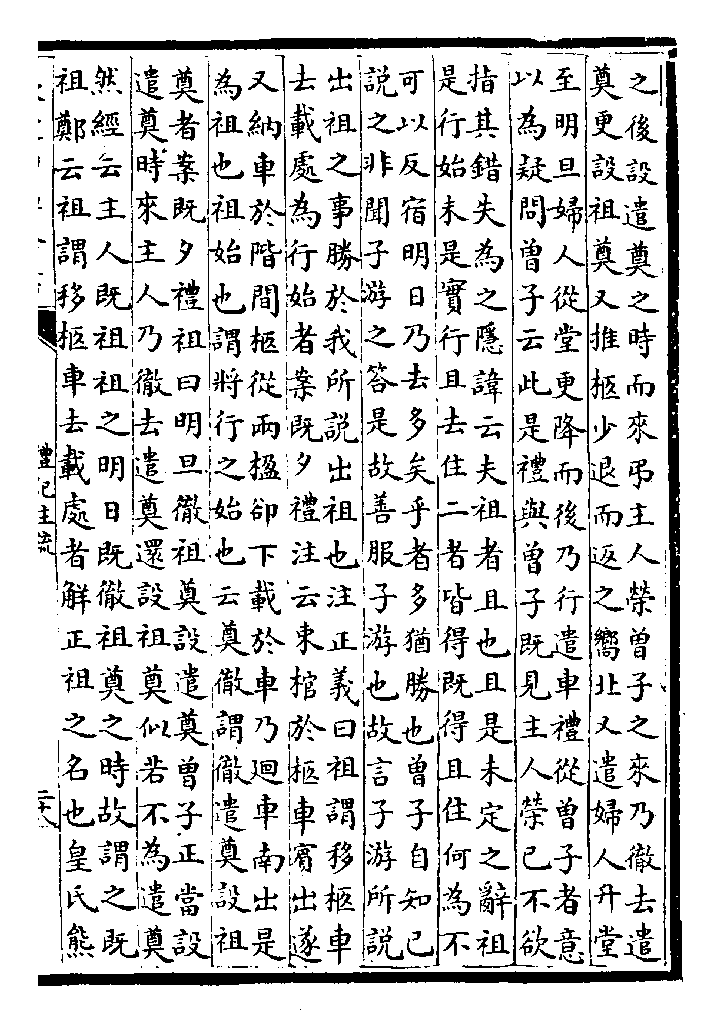 之後設遣奠之時而來弔主人榮曾子之來乃徹去遣
奠更設祖奠又推柩少退而返之嚮北又遣婦人升堂
至明旦婦人從堂更降而後乃行遣車禮從曾子者意
以為疑問曾子云此是禮與曾子既見主人榮已不欲
指其錯失為之隱諱云夫祖者且也且是未定之辭祖
是行始未是實行且去住二者皆得既得且住何為不
可以反宿明日乃去多矣乎者多猶勝也曾子自知已
説之非聞子游之答是故善服子游也故言子游所説
出祖之事勝於我所説出祖也注正義曰祖謂移柩車
去載處為行始者案既夕禮注云束棺於柩車賓出遂
又納車於階間柩從兩楹卻下載於車乃廻車南出是
為祖也祖始也謂將行之始也云奠徹謂徹遣奠設祖
奠者案既夕禮祖曰明旦徹祖奠設遣奠曾子正當設
遣奠時來主人乃徹去遣奠還設祖奠似若不為遣奠
然經云主人既祖祖之明日既徹祖奠之時故謂之既
祖鄭云祖謂移柩車去載處者解正祖之名也皇氏熊
禮記注疏
二十八